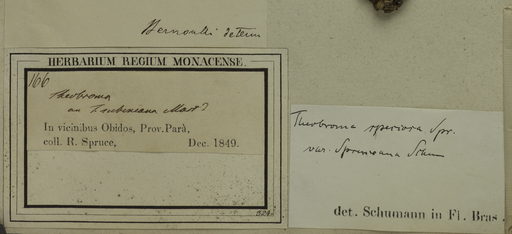 Bernoulli determ
HERBARIUM REGIUM MONACENSE.
166
Theobroma
an Mart?
In vicinibus Obidos, Prov. Parà,
coll. R. Spruce, Dec. 1849.
Theobroma speciosa Spr.
var. Spruceana Schum
det. Schumann in Fl. Bras.